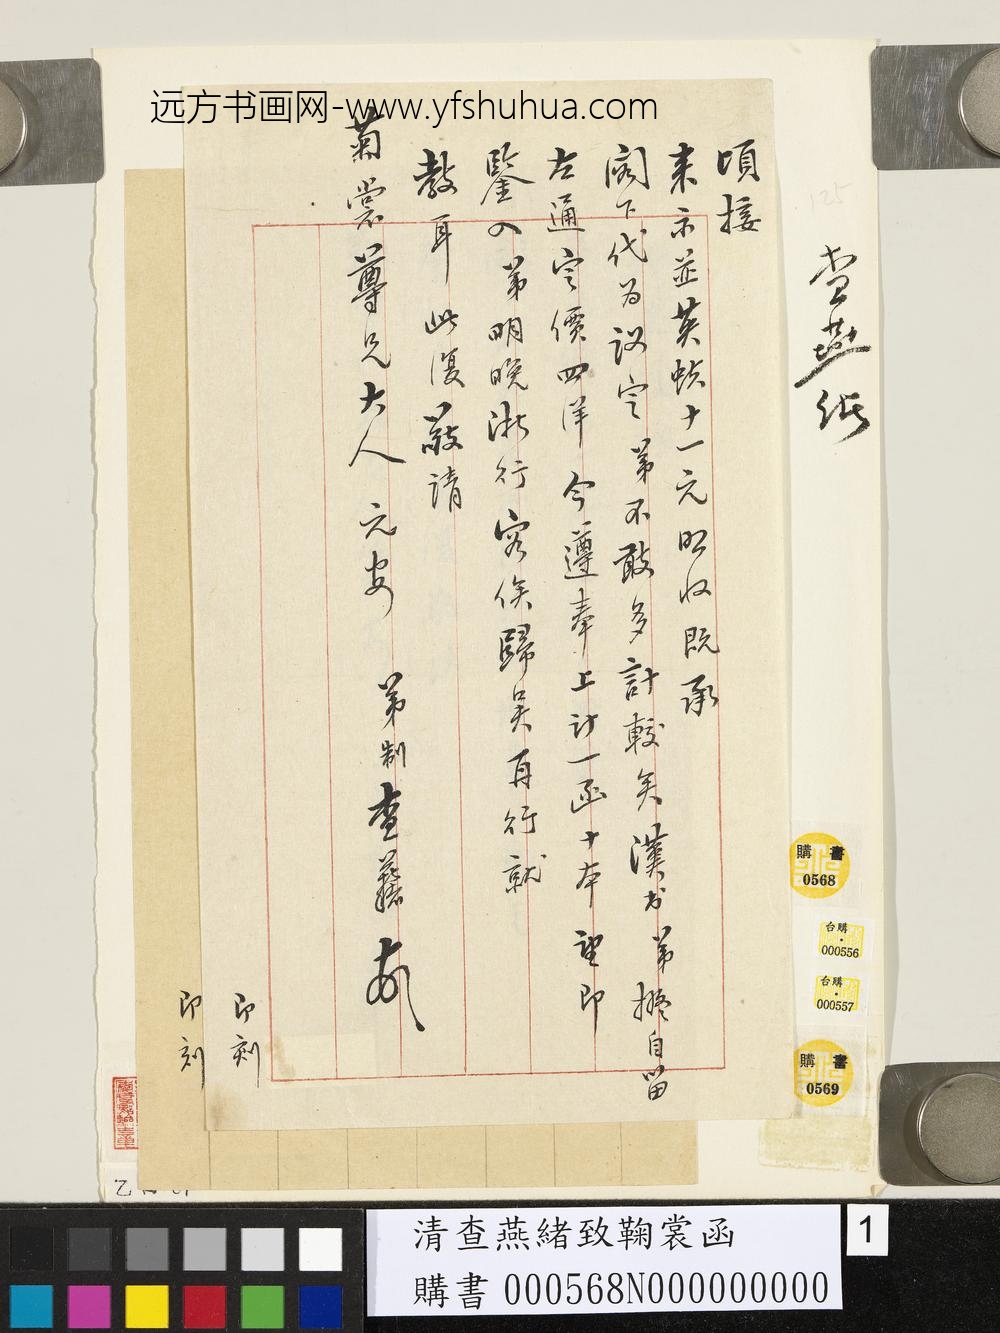 远方书画网-www.yfshuhua.com
頃接
來示並英蚨十一元照收既承
閣下代为议定弟不敢多計較矣漢书弟擬自留
左通定價四洋今遵奉上計一函十本望即
鑒入弟明晚浙行容俟歸吴再行就
教耳此復敬請
菊裳尊兄大人元安 弟制查燕緒
即刻
即刻
查燕緒
125
購書
0568
台購
000556
台購
000557
購書
0569
清查燕緒致鞠裳函
購書 000568N000000000
1